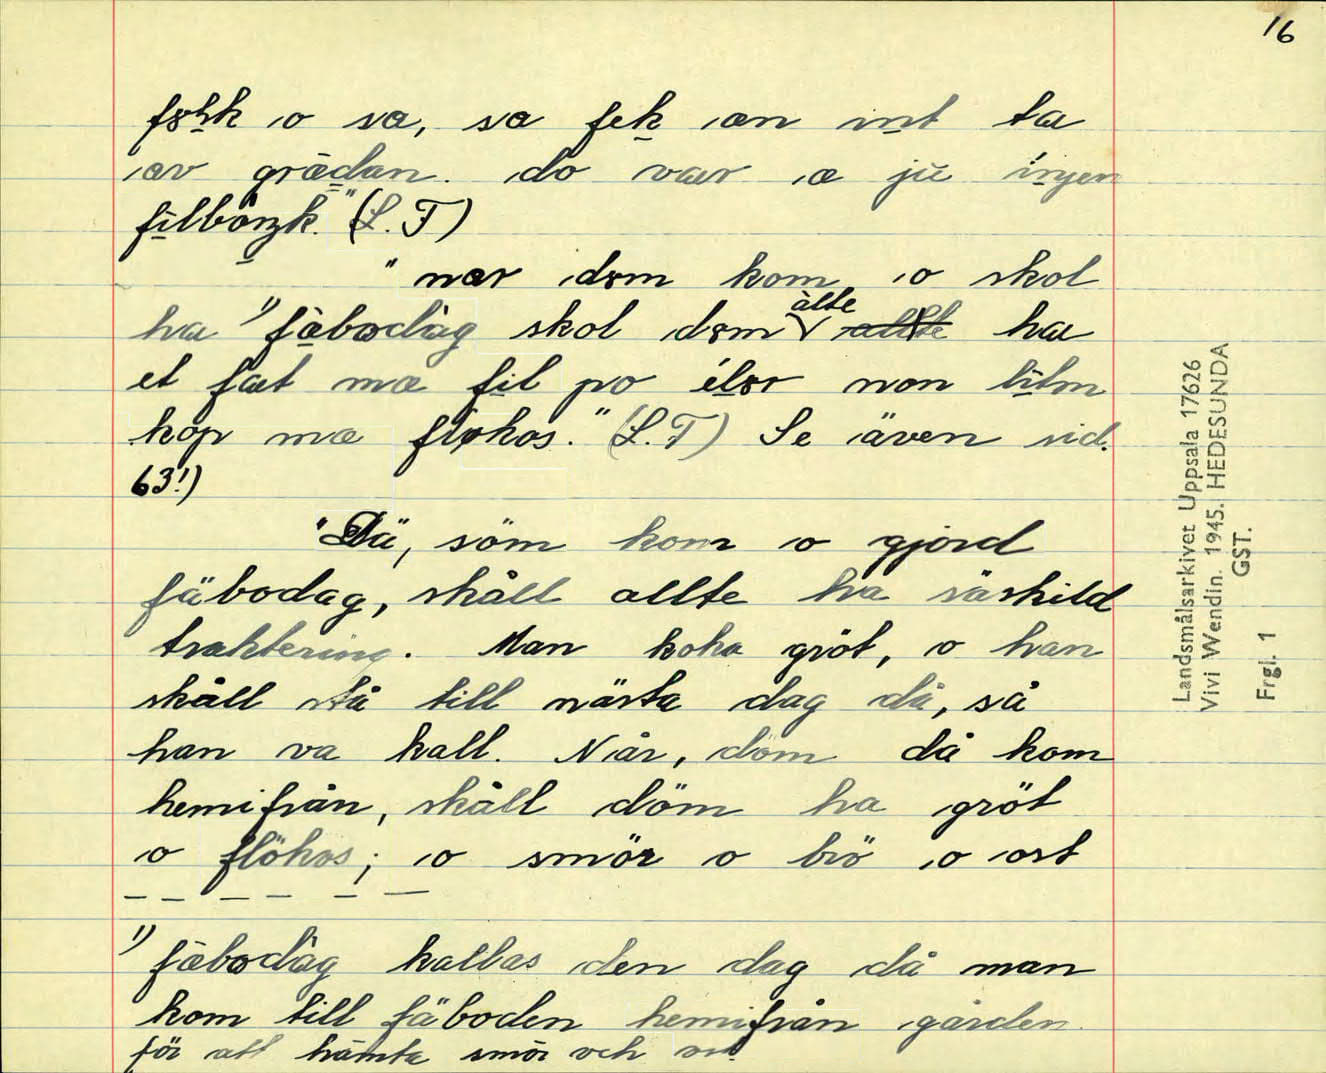 16
fɷlk o sa, sa fek an int ta
av grǟdan. do var a ju iŋen
filbôŋk." (L. F)
"nær dɷm kom o skol
ha ¹⁾ fæ̀bodàg skol dɷm àlte ha
et fat mæ fil po élɷr non litn
kop mæ fløkos." (L. F) Se även sid.
63!)
"Dä, söm kom o gjord
fäbodag, skåll allte ha särskild
traktering. Man koka gröt, o han
skåll stå till nästa dag då, så
han va kall. Når, döm då kom
hemifrån, skåll döm ha gröt
o flökos; o smör o brö o ost
¹⁾ fæ̀bodàg kallas den dag då man
kom till fäboden hemifrån gården
för att hämta smör och ost
Landsmålsarkivet Uppsala 17626
Vivi Wendin. 1945. HEDESUNDA
GST.
Frgl. 1